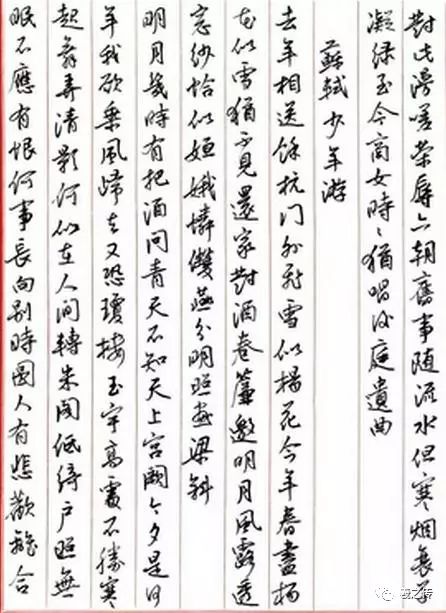 對此漫嗟榮辱六朝舊事随流水但寒烟衰草
凝绿至今商女時〻猶唱後庭遺曲
蘇軾少年游
去年相送餘杭门外飛雪似楊花今年春盡楊
花似雪猶不見還家對酒卷簾邀明月風露透
窓紗恰似姮娥憐雙燕分明照畫梁斜
明月幾時有把酒問青天不知天上宮闕今夕是何
年我欲乘風歸去又恐瓊樓玉宇高處不勝寒
起舞弄清影何似在人间轉朱閣低綺户照無
眠不應有恨何事長向别時圆人有悲歡離合